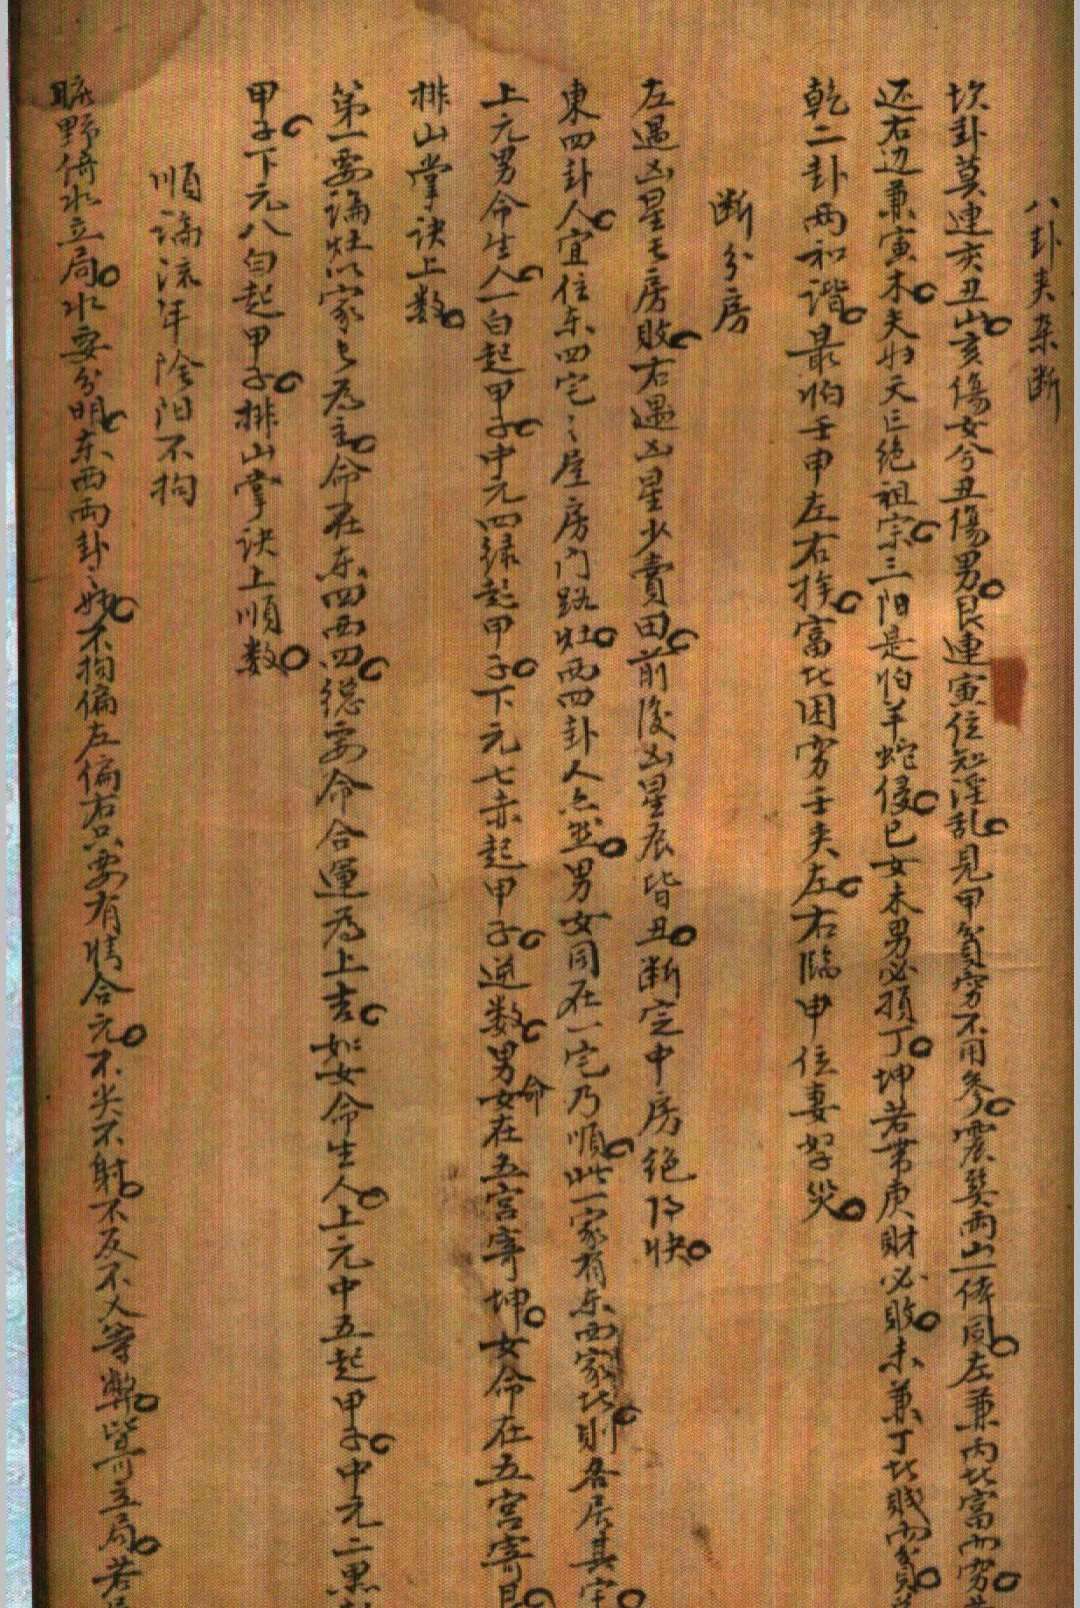 八卦夹杂断
坎卦莫連亥丑山亥傷女兮丑傷男艮連寅位知淫乱見甲貧穷不用參震巽两山一体同左兼丙比富而穷
还右边兼寅木夫妇天亡绝祖宗三阳是怕羊蛇侵巳女未男必损丁坤若带庚財必敗未兼丁比賤而貧
乾二卦两和谐最怕壬申左右挨富比困穷壬夹左右臨申位妻孥災
断分房
左遇凶星長房敗右遇凶星少賣田前後凶星辰皆丑断定中房绝得快
東四卦人宜住东四宅之屋房门路灶西四卦人亦然男女同在一宅乃順此一家有东西家比則各居其宅
上元男命生人一白起甲子中元四绿起甲子下元七赤起甲子逆数男女命在五宫寄坤女命在五宫寄艮
排山掌诀上数
第一要論灶以家長為主命在东四西四總要命合運為上吉如女命生人上元中五起甲子中元二黑
甲子下元八白起甲子排山掌诀上順数
順論流年陰阳不拘
曠野倚水立局水要分明东西两卦不拘偏左偏右只要有情合元不尖不射不反不入等弊皆可立局若